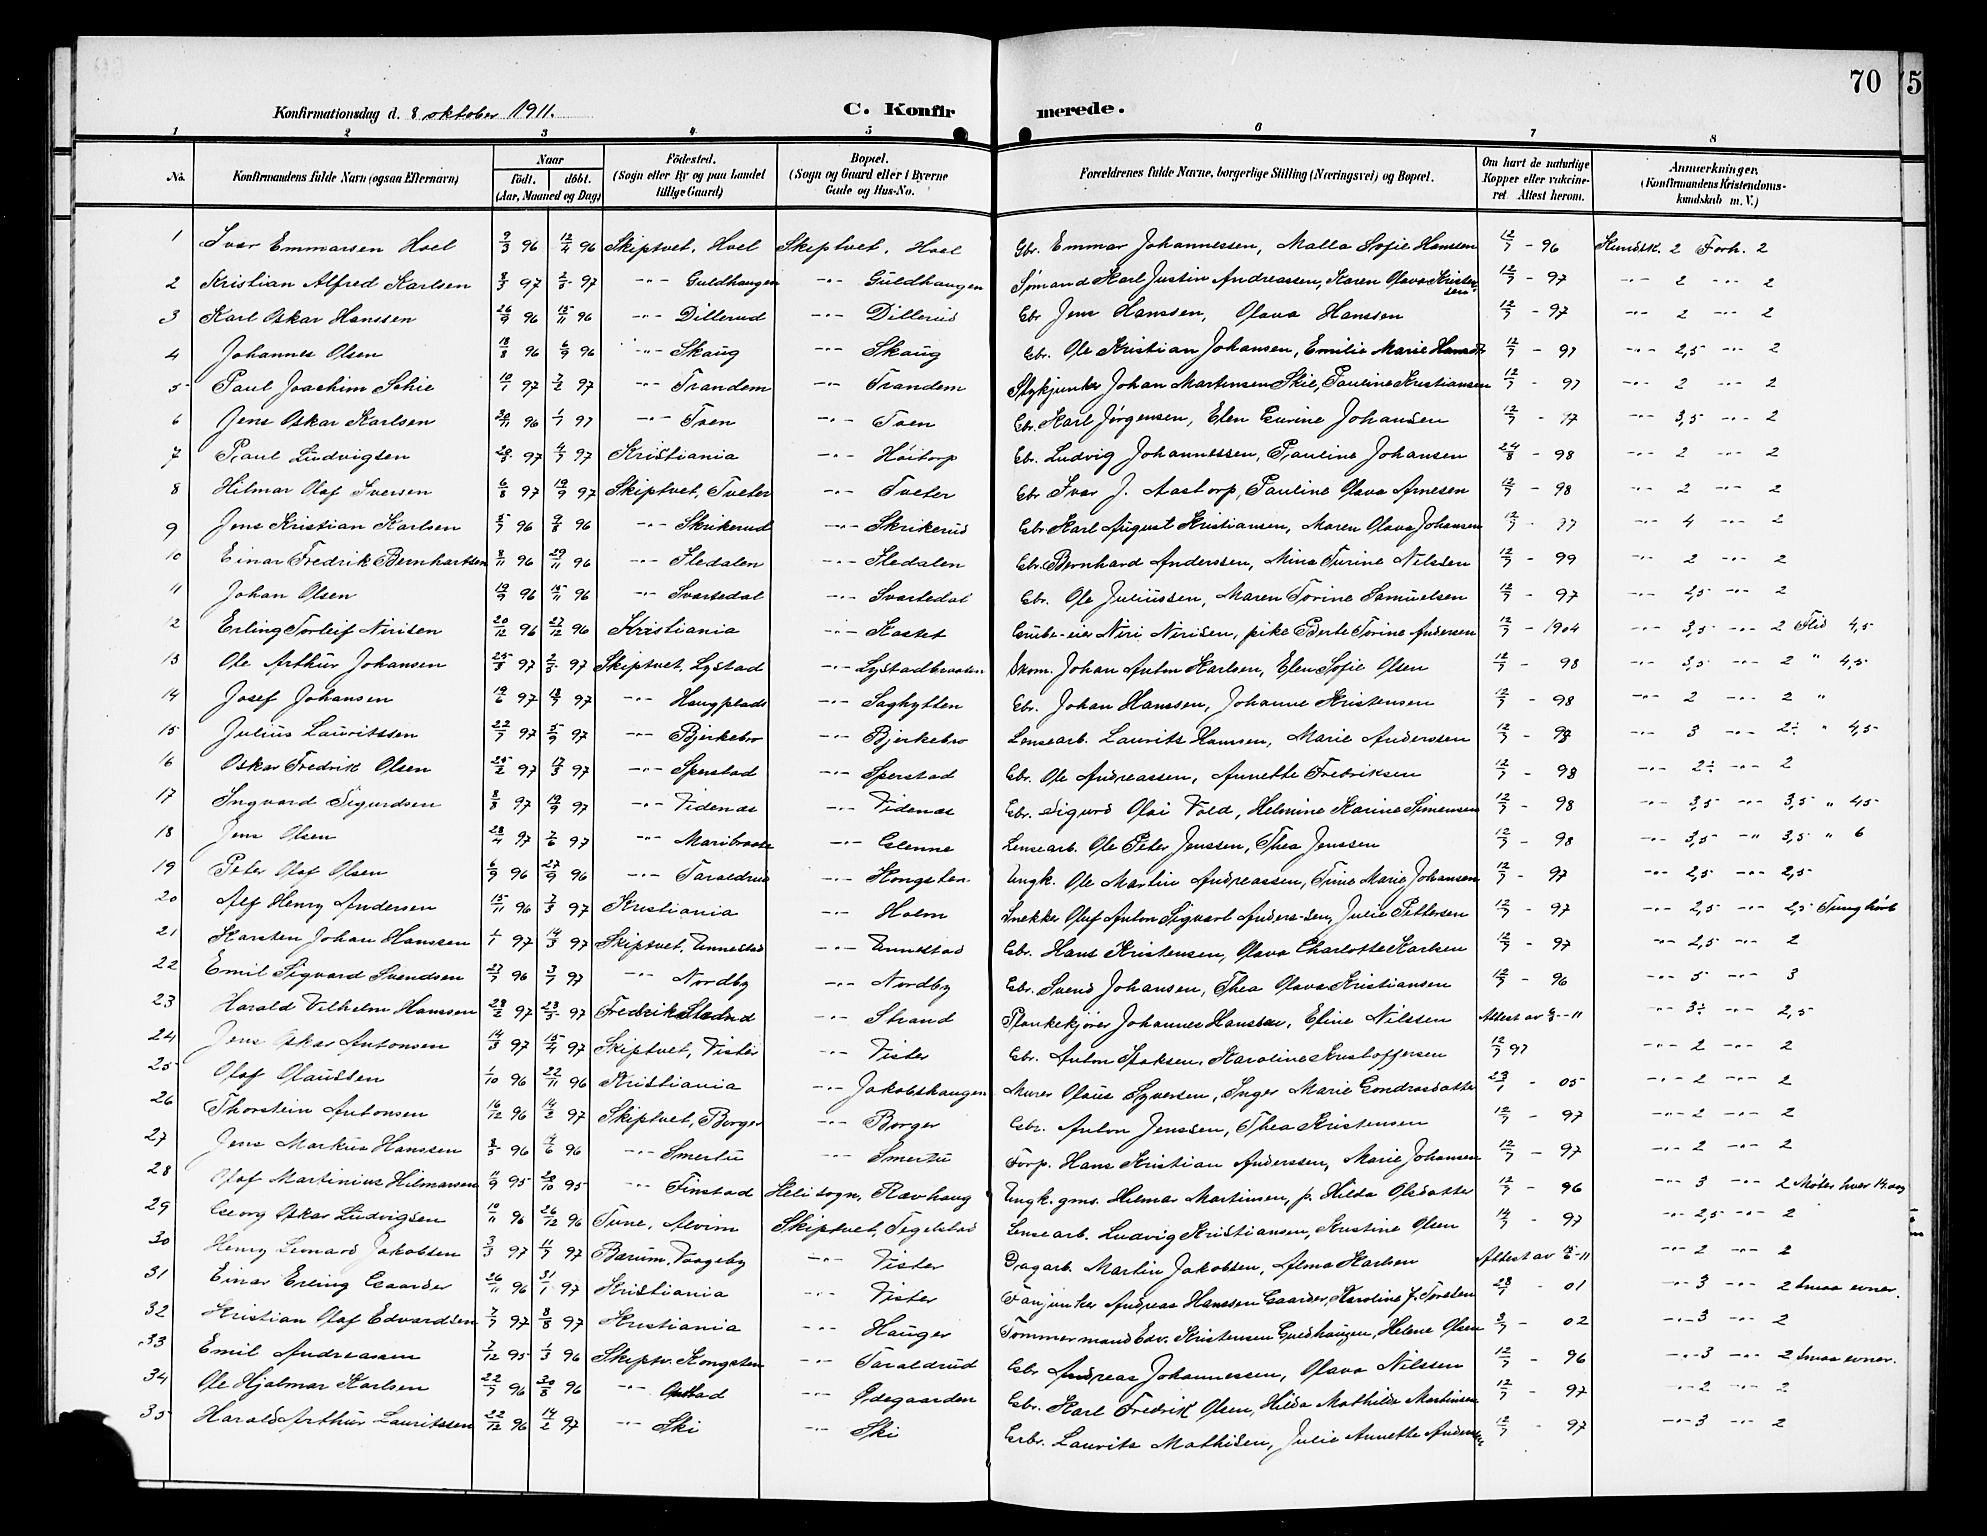 70
5
Konfirmationsdag d. 8 oktober 1911.
C. Konfir
merede.
1 2 3 4 5 6 7 8
No. Konfirmandens fulde Navn (ogsaa Efternavn) Naar født. døbt. (Aar, Maaned og Dag) Fødested. (Sogn eller By og paa Landet tillige Gaard) Bopæl. (Sogn og Gaard eller i Byerne Gade og Hus-No. Forældrenes fulde Navne, borgerlige Stilling (Næringsvei) og Bopæl. Om havt de naturlige Kopper eller vakcineret Attest herom. Anmærkninger. (Konfirmandens Kristendomskundskab m. V.)
1 Ivar Emmarsen Hoel 9/3 96 12/4 96 Skiptvet, Hoel Skiptvet, Hoel Gbr. Emmar Johannessen, Malla Sofie Hanssen 12/7 - 96 Kundsk. 2 Forh. 2
2 Kristian Alfred Karlsen 97 97 -"- Guldhaugen -"- Guldhaugen Sømand Karl Justin Andreassen, Karen Olava Kristensen 12/7 - 97 -"- 2 -"- 2
3 Karl Oskar Hanssen 26/9 96 15/11 96 -"- Dillerud -"- Dillerud Gbr Jens Hanssen, Olava Hanssen 12/7 - 97 -"- 2 -"- 2
4 Johannes Olsen 18/8 96 6/9 96 -"- Skaug -"- Skaug Gbr. Ole Kristian Johansen, Emilie Marie 12/7 - 97 -"- 2,5 -"- 2
5 Paul Joachim Schie 10/1 97 7/2 97 -"- Trandem -"- Trandem Stykjunker Johan Martensen Skie, Pauline Kristiansen 12/7 - 97 -"- 2 -"- 2
6 Jens Oskar Karlsen 20/11 96 1/1 97 -"- Tven -"- Tven Gbr. Karl Jørgensen, Elen Gurine Johansen 12/7 - 97 -"- 3,5 -"- 2
7 Paul Ludvigsen 97 97 Kristiania -"- Høitorp Gbr. Ludvig Johannessen, Pauline Johansen 24/8 - 98 -"- 2 -"- 2
8 Hilmar Olaf Iversen 6/8 97 19/9 97 Skiptvet, Tveter -"- Tveter Gbr Ivar J. Aastorp, Pauline Olava Arnesen 12/7 - 98 -"- 2 -"- 2
9 Jens Kristian Karlsen 5/7 96 9/8 96 -"- Skrikerud -"- Skrikerud Gbr. Karl August Kristiansen, Maren Olava Johansen 12/7 - 97 -"- 4 -"- 2
10 Einar Fredrik Bernhartsen 8/11 96 29/11 96 -"- Sledalen -"- Sledalen Gbr. Bernhard Anderssen, Mina Turine Nilssen 12/7 - 99 -"- 2 -"- 2
11 Johan Olsen 19/9 96 15/11 96 -"- Svartedal -"- Svartedal Gbr. Ole Juliussen, Maren Torine Samuelsen 12/7 - 97 -"- 2,5 -"- 2
12 Erling Torleif Nirisen 20/12 96 27/12 96 Kristiania -"- Kastet Grube-eier Niri Nirisen, pike Berte Torine Andersen 12/7 - 1904 -"- 3,5 -"- 2 Flid 4,5
13 Ole Arthur Johansen 97 97 Skiptvet, Lystad -"- Lystadbraaten Skom. Johan Anton Karlsen, Elen Sofie Olsen 12/7 - 98 -"- 3,5 -"- 2 " 4,5
14 Josef Johansen 19/6 97 18/7 97 -"- Haugplads -"- Saghytten Gbr. Johan Hanssen, Johanne Kristensen 12/7 - 98 -"- 2 -"- 2 "
15 Julius Lauritssen 22/7 97 5/9 97 -"- Bjerkebro -"- Bjerkebro Lensearb. Laurits Hanssen, Marie Anderssen 12/7 - 98 -"- 3 -"- 2÷ " 4,5
16 Oskar Fredrik Olsen 25/2 97 97 -"- Sperstad -"- Sperstad Gbr. Ole Andreassen, Annette Fredriksen 12/7 - 98 -"- 2÷ -"- 2
17 Ingvard Sigurdsen 8/8 97 19/9 97 -"- Videnæs -"- Videnæs Gbr. Sigurd Olai Vold, Helmine Karine Simensen 12/7 - 98 -"- 3,5 -"- 3,5 " 45
18 Jens Olsen 28/4 97 7/6 97 -"- Maribraate -"- Glenne Lensearb. Ole Peter Jenssen, Thea Jenssen 12/7 - 98 -"- 3,5 -"- 3,5 " 6
19 Peter Olaf Olsen 6/9 96 27/9 96 -"- Taraldrud -"- Kongsten Ungk. Ole Martin Andreassen, Trine Marie Johansen 12/7 - 97 -"- 2,5 -"- 2,5
20 Alf Henry Andersen 15/11 96 7/3 97 Kristiania -"- Holm Snekker Olaf Anton Sigvart Anderssen, Julie Pettersen 12/7 - 97 -"- 2,5 -"- 2,5 Tunghørt
21 Karsten Johan Hanssen 1/1 97 14/3 97 Skiptvet, Unnestad -"- Unnestad Gbr. Hans Kristensen, Olava Charlotte Karlsen 12/7 - 97 -"- 2,5 -"- 2
22 Emil Sigvard Svendsen 96 97 -"- Nordby -"- Nordby Gbr. Svend Johansen, Thea Olava Kristiansen 12/7 - 96 -"- 5 -"- 3
23 Harald Vilhelm Hanssen 97 97 Fredrikstad -"- Strand Plankekjører Johannes Hanssen, Eline Nilssen Attest av -11 -"- 3÷ -"- 2,5
24 Jens Oskar Antonsen 14/3 97 15/4 97 Skiptvet, Vister -"- Vister Gbr. Anton Isaksen, Karoline Kristoffersen 12/7 97 -"- 2 -"- 2
25 Olaf Olaussen 1/10 96 22/11 96 Kristiania -"- Jakobshaugen Murer Olaus Syversen, Inger Marie Gondrosdatter 23/1 - 05 -"- 2 -"- 2
26 Thorstein Antonsen 16/12 96 14/2 97 Skiptvet, Borger -"- Borger Gbr. Anton Jenssen, Thea Kristensen 12/7 - 97 -"- 2 -"- 2
27 Jens Markus Hanssen 8/5 96 96 -"- Smertu -"- Smertu Forp. Hans Kristian Anderssen, Marie Johansen 12/7 - 97 -"- 2 -"- 2
28 Olaf Martinius Hilmarsen 11/9 95 20/10 95 -"- Finstad Heli sogn, Rævhaug Ungk. gms. Hilmar Martinsen, p. Hilda Olsdatter 12/7 - 96 -"- 3 -"- 2 Møter hver 14. dag
29 Georg Oskar Ludvigsen 10/11 96 26/12 96 Tune, Alvim Skiptvet, Tegelstad Lensearb. Ludvig Kristiansen, Kristine Olsen 14/7 - 97 -"- 2,5 -"- 2
30 Henry Leonard Jakobsen 3/3 97 11/7 97 Bærum, Vaageby -"- Vister Dagarb. Martin Jakobsen, Alma Karlsen Attest av -11 -"- 2 -"- 2
31 Einar Erling Gaarder 26/11 96 31/1 97 Kristiania -"- Vister Fanjunker Andreas Hanssen Gaarder, Karoline J. Toresen 28/7 - 01 -"- 3 -"- 2 Smaa evner.
32 Kristian Olaf Edvardsen 7/7 97 8/8 97 Kristiania -"- Hauger Tømmermand Edv. Kristensen Guldhaugen, Helene Olsen 3/7 - 02 -"- 3 -"- 2
33 Emil Andreassen 7/12 95 1/3 96 Skiptv. Kongsten -"- Taraldrud Gbr Andreas Johannessen, Olava Nilsen 12/7 - 96 -"- 3 -"- 2 Smaa evner.
34 Ole Hjalmar Karlsen 22/7 96 30/8 96 -"- -"- Ødegaarden Gbr. Karl Fredrik Olsen, Hilda Mathilde Martinsen 12/7 - 97 -"- 2 -"- 2
35 Harald Arthur Lauritssen 22/12 96 14/2 97 -"- Ski -"- Ski Gbr. Laurits Mathisen, Julie Annette Andersen 12/7 - 97 -"- 3 -"- 2